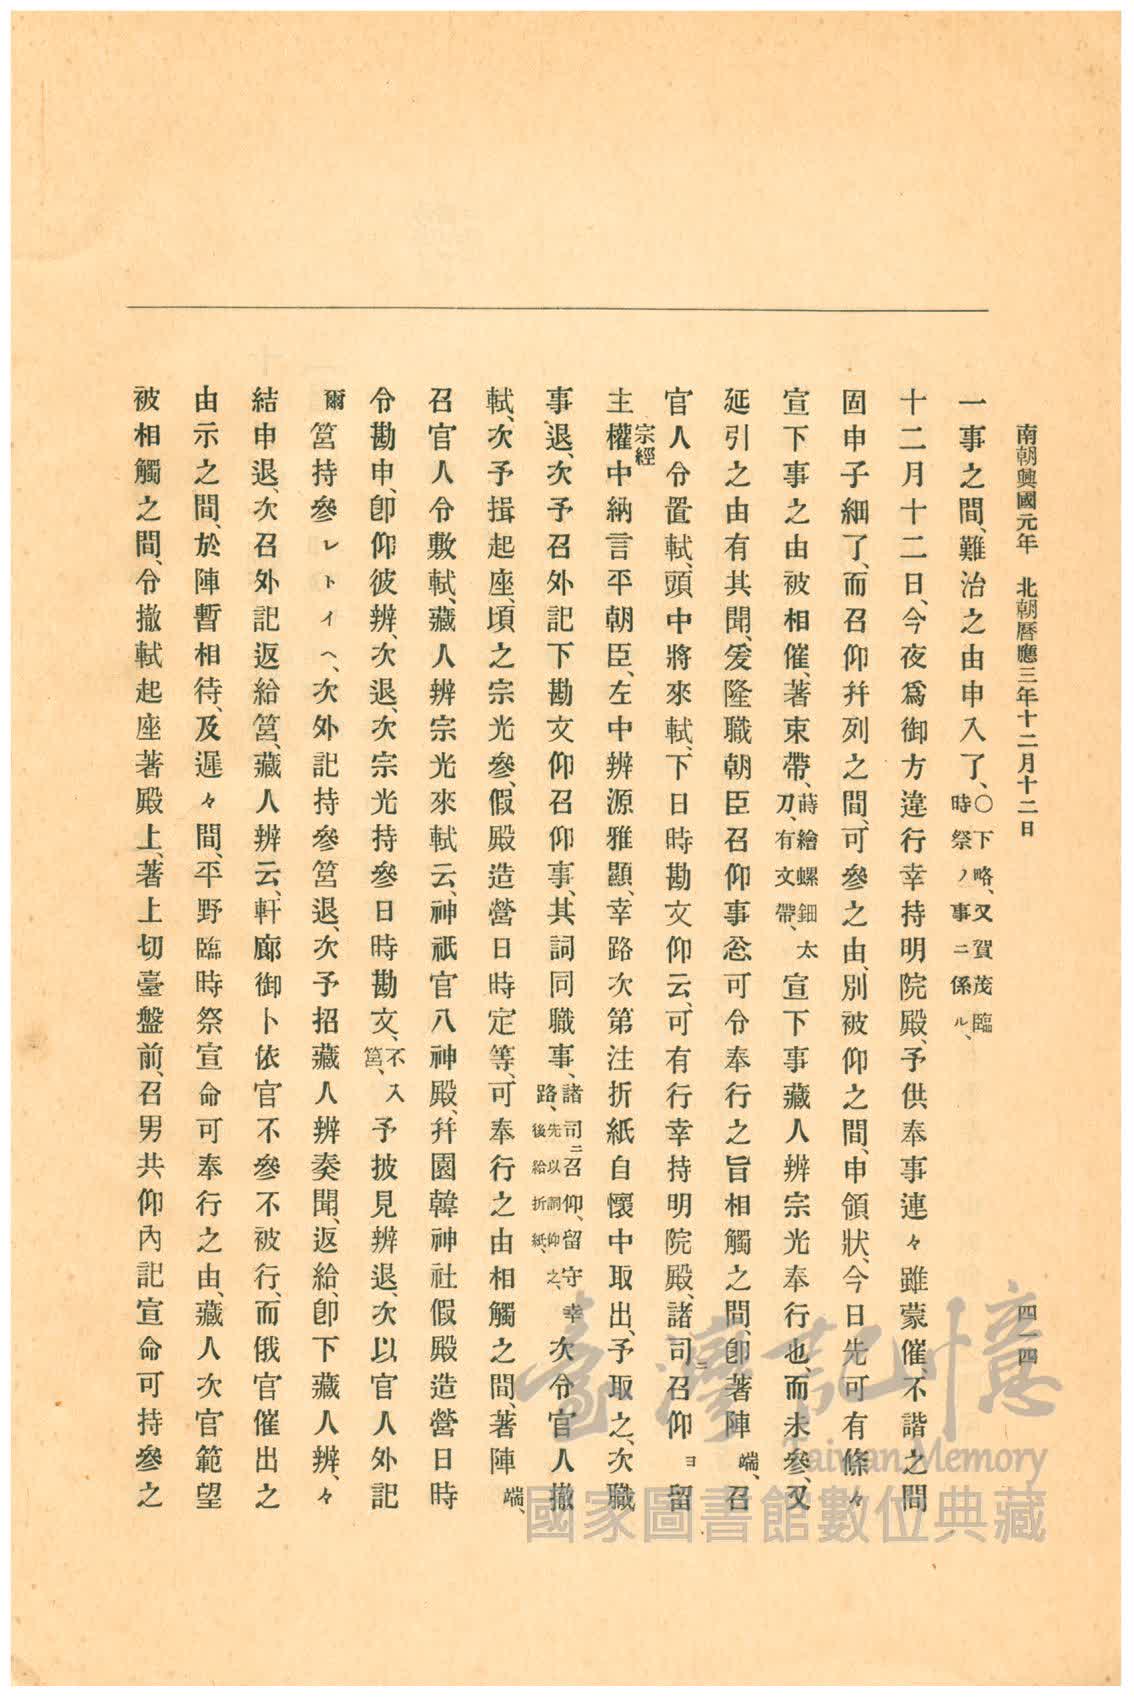 南朝興國元年 北朝曆應三年十二月十二日 四一四
一事之間、難治之由申入了、○下略、又賀茂臨時祭ノ事ニ係ル、
十二月十二日、今夜爲御方違行幸持明院殿、予供奉事連々雖蒙催、不諧之間
固申子細了、而召仰幷列之間、可參之由、別被仰之間、申領狀、今日先可有條々
宣下事之由被相催、著束帶、蒔繪螺鈿太刀、有文帶、宣下事藏人辨宗光奉行也、而未參、又
延引之由有其聞、爰隆職朝臣召仰事忩可令奉行之旨相觸之間、卽著陣端、召
官人令置軾、頭中將來軾、下日時勘文仰云、可有行幸持明院殿、諸司ニ召仰ヨ留
主權中納言宗經平朝臣、左中辨源雅顯、幸路次第注折紙自懷中取出、予取之、次職
事退、次予召外記下勘文仰召仰事、其詞同職事、諸司ニ召仰、留守幸路、先以詞仰之、後給折紙、次令官人撤
軾、次予揖起座、頃之宗光參、假殿造營日時定等、可奉行之由相觸之間、著陣端、
召官人令敷軾、藏人辨宗光來軾云、神祇官八神殿、幷園韓神社假殿造營日時
令勘申、卽仰彼辨、次退、次宗光持參日時勘文、不入筥、予披見辨退、次以官人外記
爾筥持參レトイヘ、次外記持參筥退、次予招藏人辨奏聞、返給、卽下藏人辨、々
結申退、次召外記返給筥、藏人辨云、軒廊御卜依官不參不被行、而俄官催出之
由示之間、於陣暫相待、及遲々間、平野臨時祭宣命可奉行之由、藏人次官範望
被相觸之間、令撤軾起座著殿上、著上切臺盤前、召男共仰內記宣命可持參之
臺灣記憶
Taiwan Memory
國家圖書館數位典藏